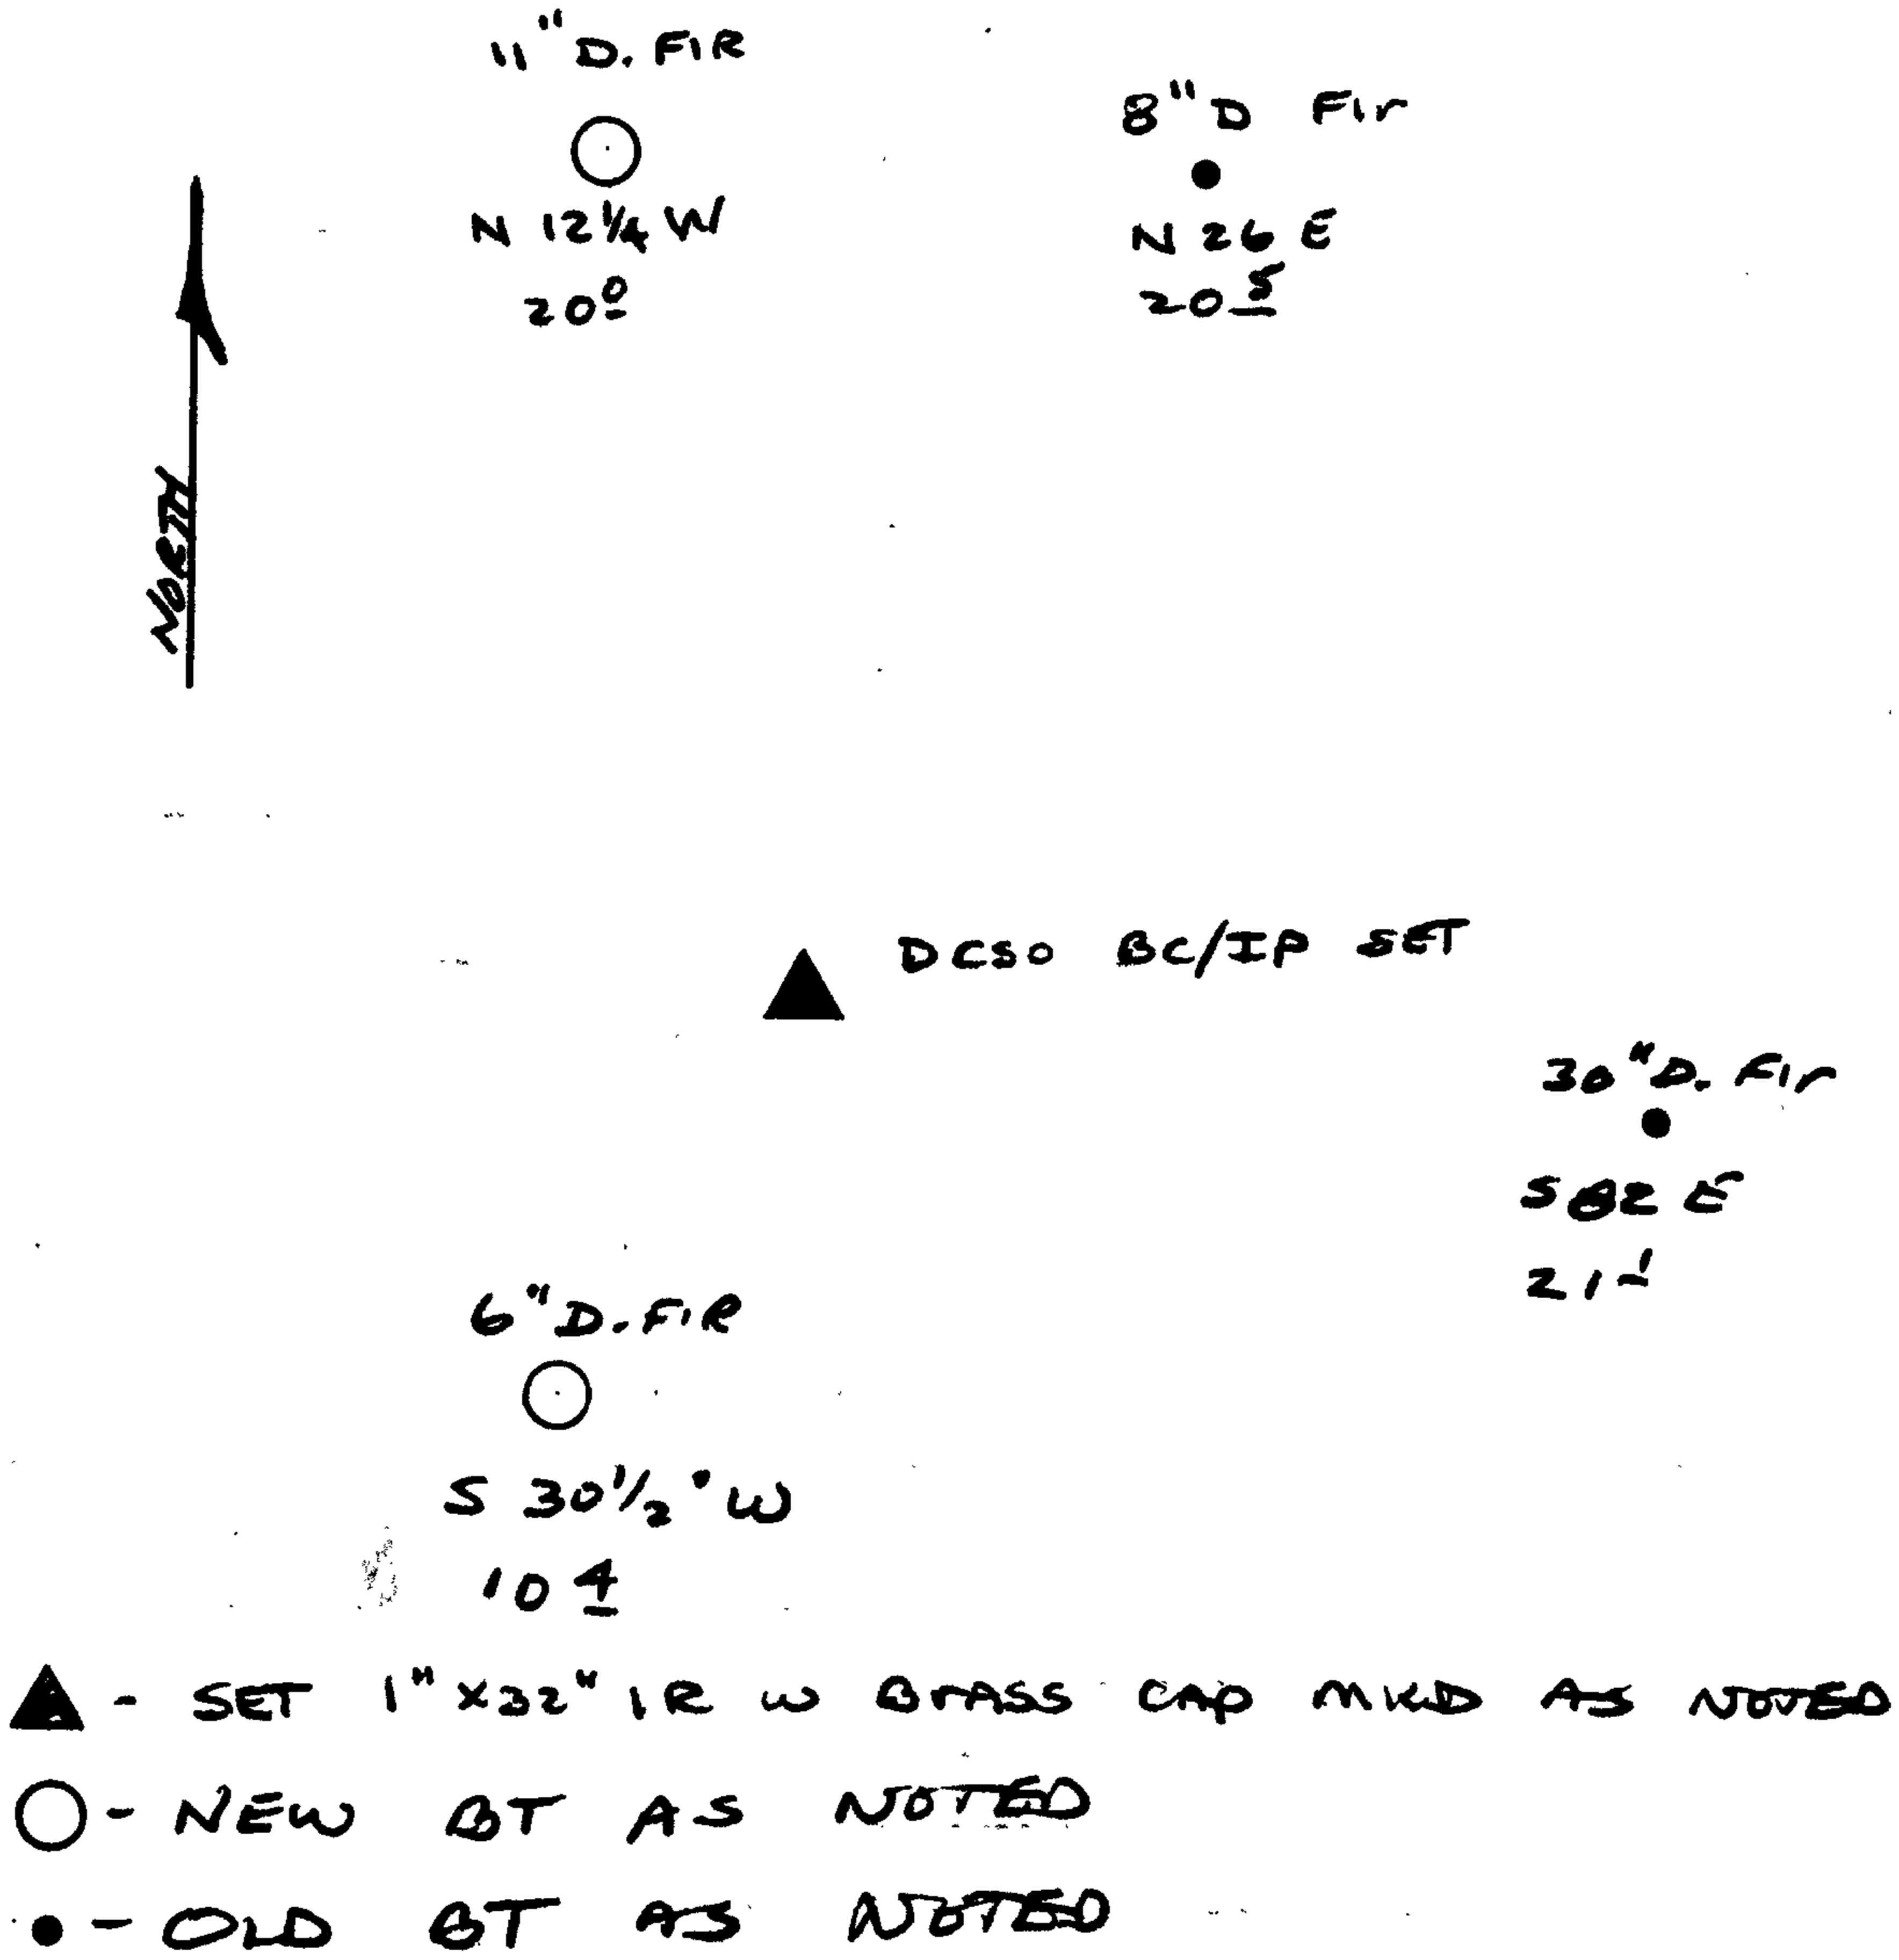 11" D. FIR
N 12 1/4 W
20 0
8" D Fir
N 26 E
20 5
NORTH
DCSO BC/IP SET
30" D. Fir
S 82 E
21 1
6" D. FIR
S 30 1/2° W
10 4
- SET 1" X 32" IR W BrASS CAP MKD AS NOTED
- NEW BT AS NOTED
- OLD BT AS NOTED